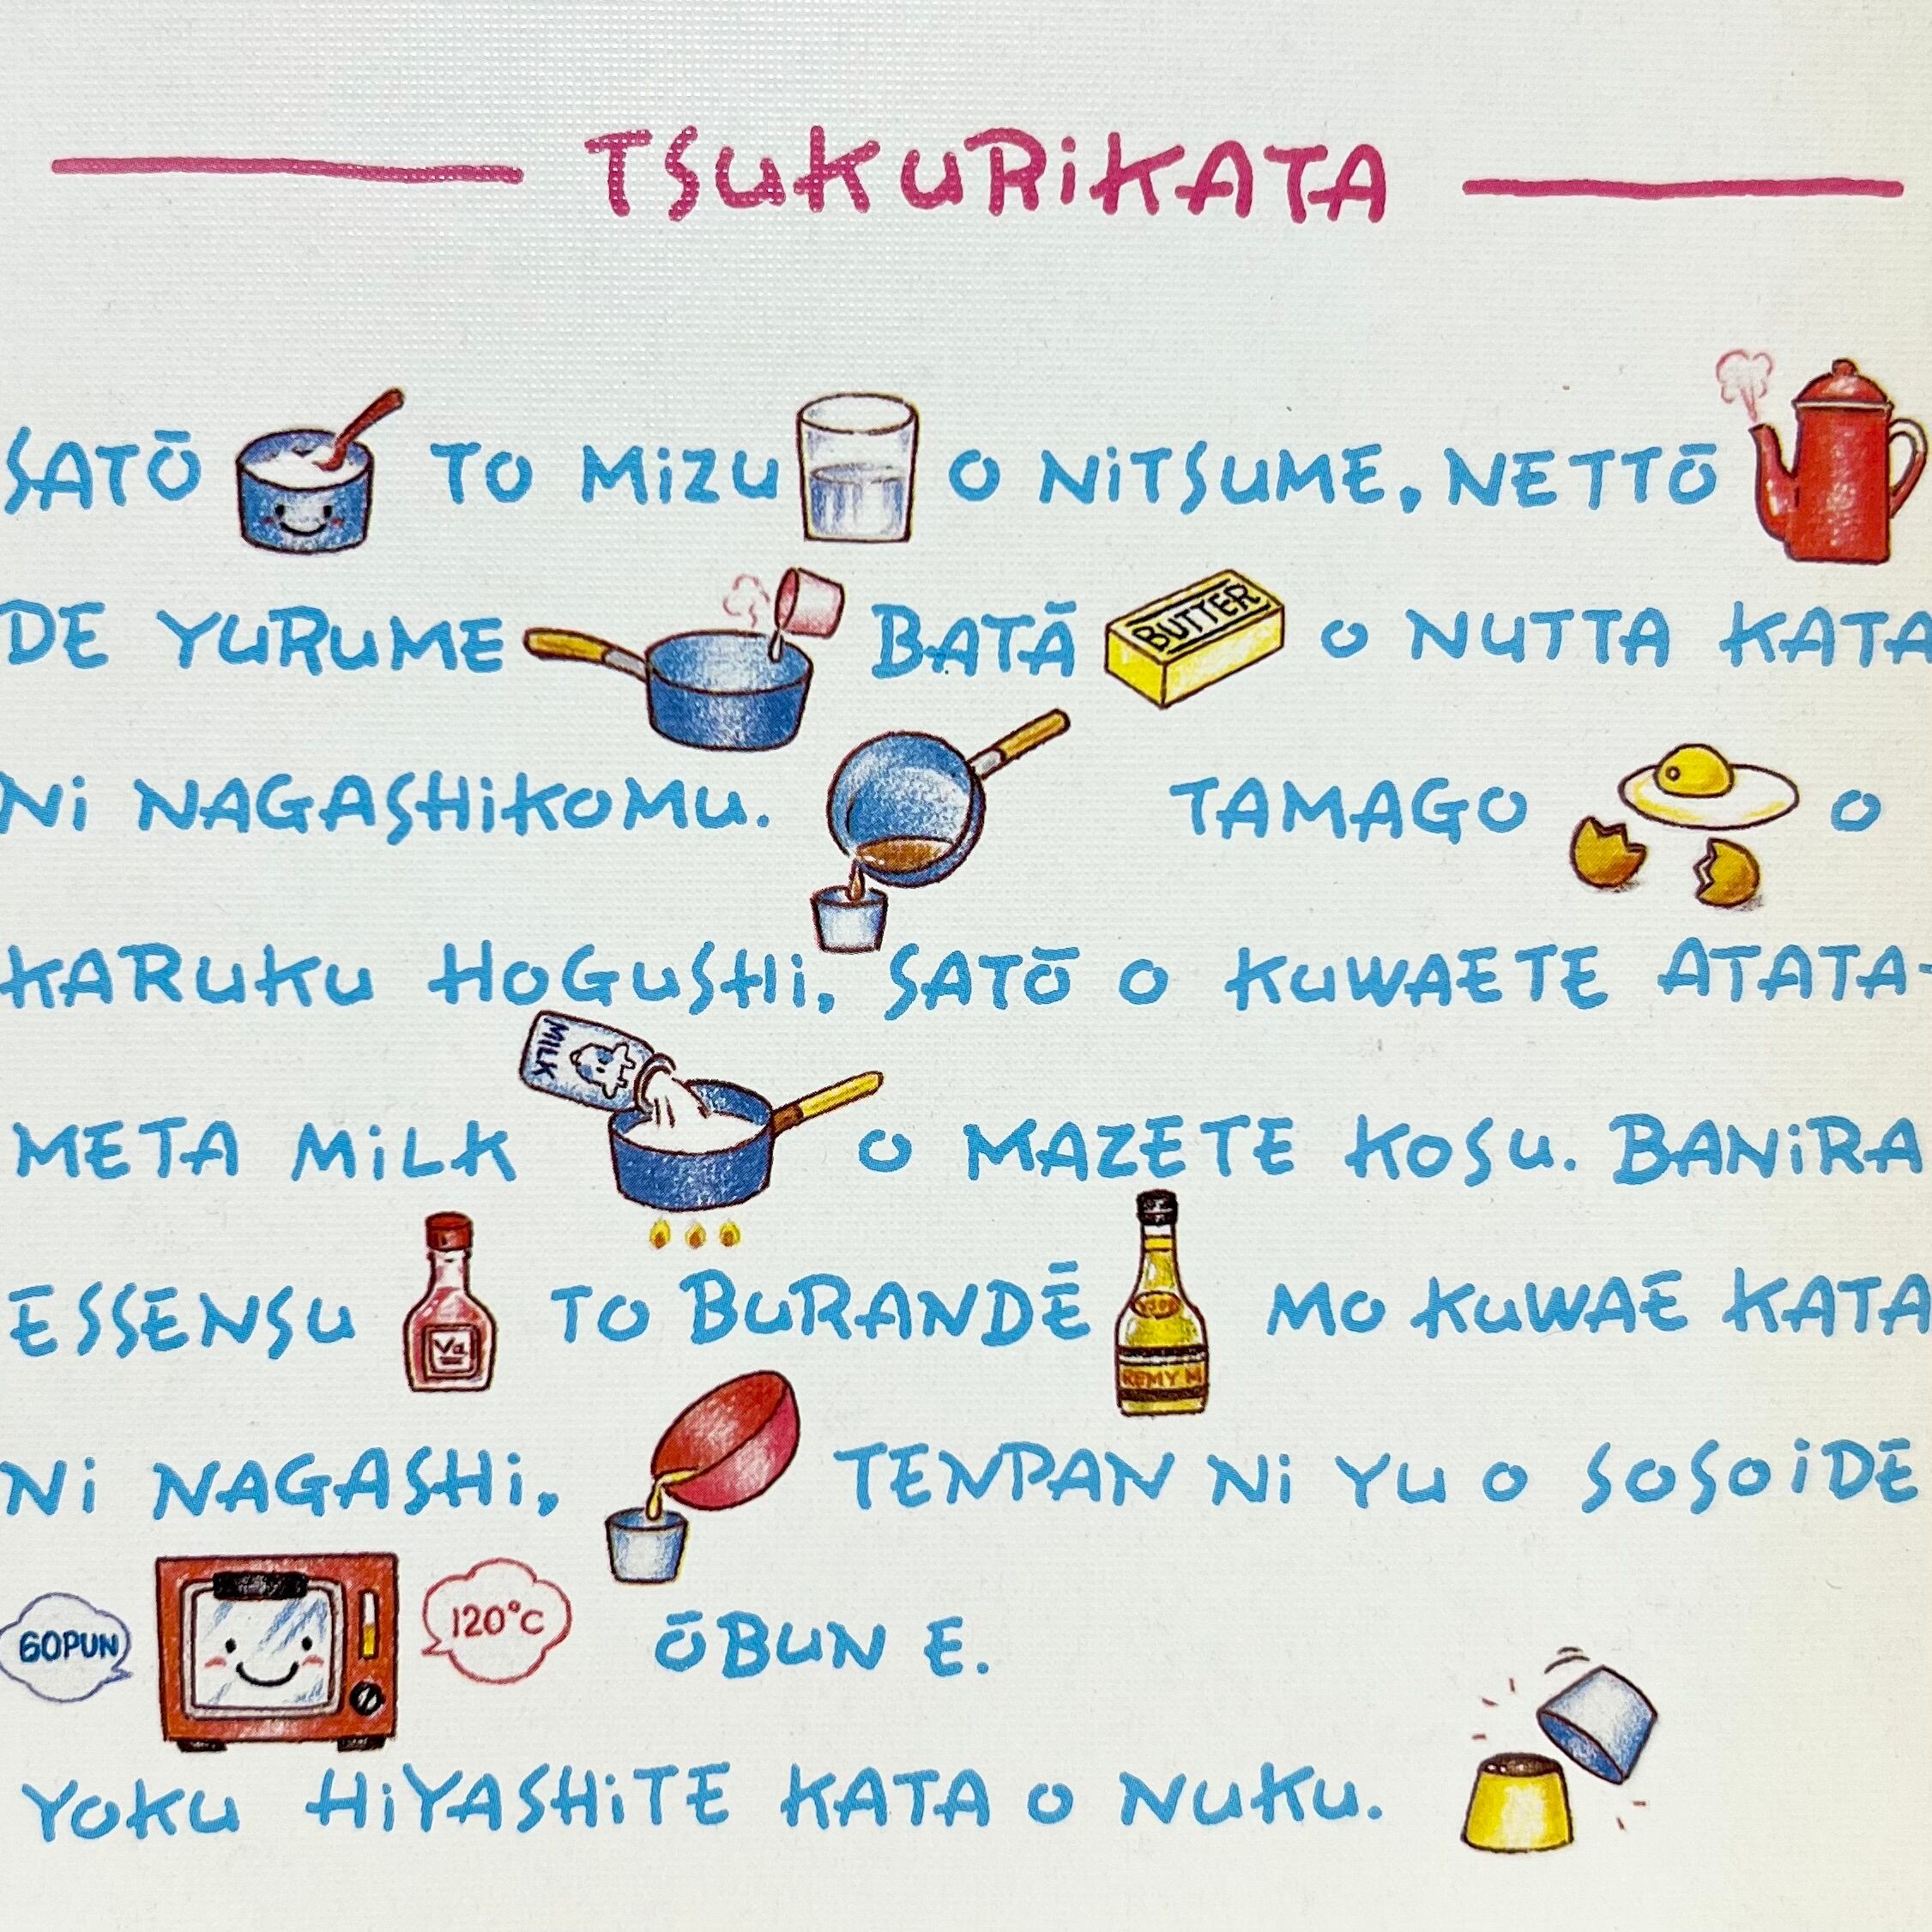 TSUKURIKATA
SATŌ TO MIZU O NITSUME, NETTŌ
DE YURUME BATĀ BUTTER O NUTTA KATA
NI NAGASHIKOMU. TAMAGO O
KARUKU HOGUSHI, SATŌ O KUWAETE ATATA-
META MILK MILK O MAZETE KOSU. BANIRA
ESSENSU Va TO BURANDĒ VSOP REMY M MO KUWAE KATA
NI NAGASHI, TENPAN NI YU O SOSOIDE
60PUN 120°C ŌBUN E.
YOKU HIYASHITE KATA O NUKU.